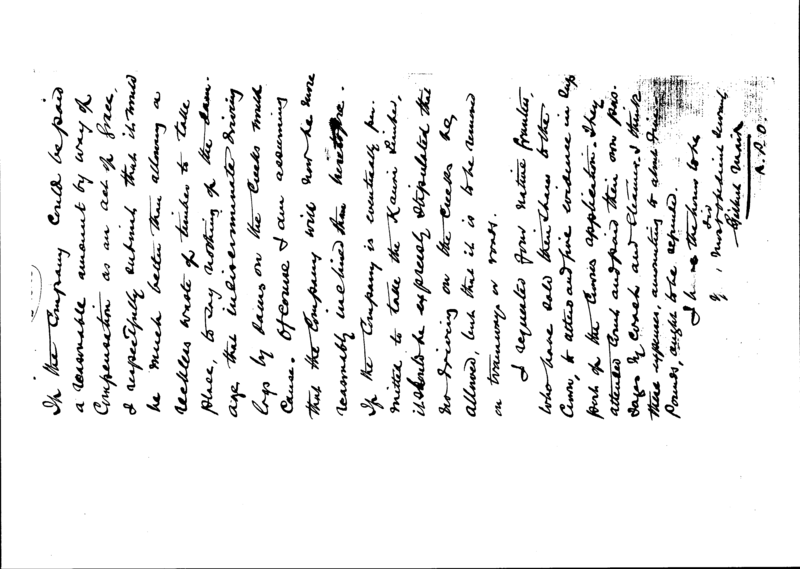 If the Company could be paid
a reasonable amount by way of
Compensation as an act of grace,
I respectfully submit that it would
be much better than allowing a
reckless waste of timber to take
place, to say nothing of the dam-
age this indiscriminate driving
logs by dams on the Creeks would
cause. Of course I am assuming
that the Company will now be more
reasonably inclined than heretofore.
If the Company is eventually per-
mitted to take the Kauri timber,
it should be expressly stipulated that
no driving on the Creeks be
allowed but that it is to be removed
on tramways or roads.
I requested four native grantees,
who have sold their shares to the
Crown, to attend and give evidence in sup
port of the Crown's application. They
attended Court and paid their own pas-
sages by coach and steamer. I think
these expenses, amounting to about
Pounds, ought to be refunded.
I have the honor to be
Sir
Yr. Most obedient Servant,
Gilbert Mair